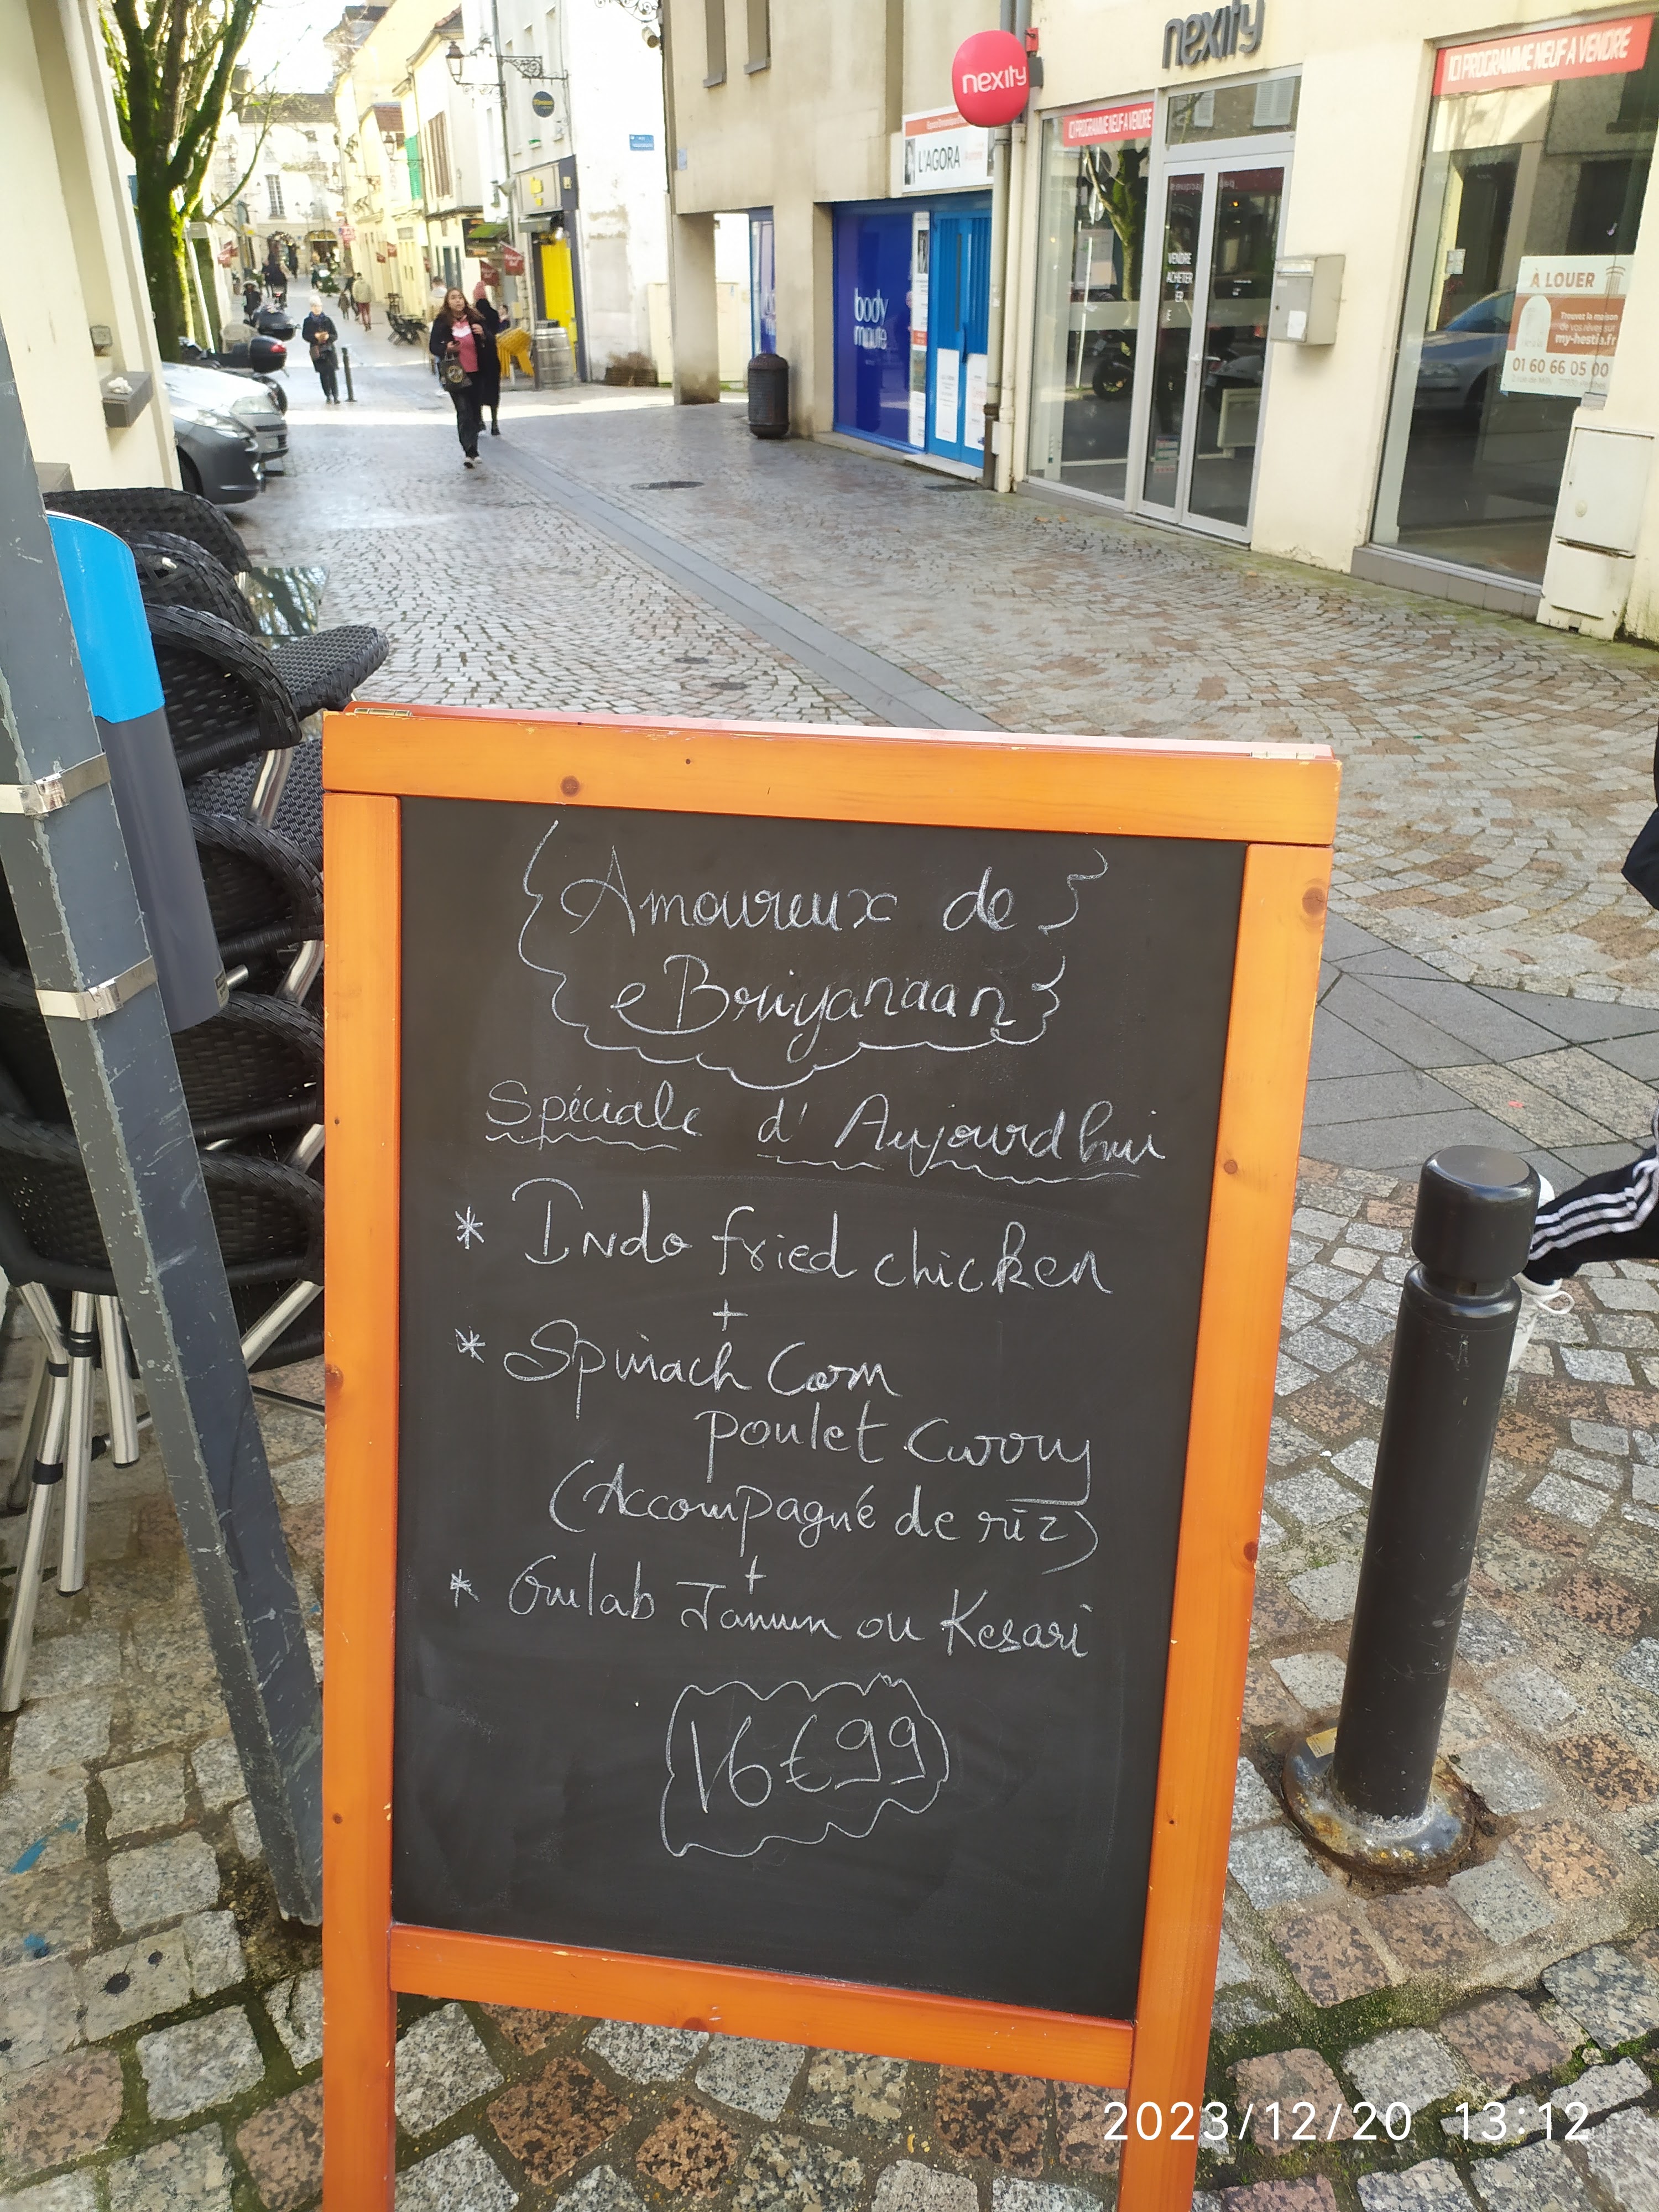 nexity
nexity
ICI PROGRAMME NEUF A VENDRE
ICI PROGRAMME NEUF A VENDRE
L'AGORA
body
minute
VENDRE
ACHETER
À LOUER
Trouvez la maison
de vos rêves sur
my-hestia.fr
01 60 66 05 00
Amoureux de
Briyanaan
Spéciale d' Aujourdhui
* Indo fried chicken
+
* Spinach Corn
poulet Curry
(Accompagné de riz)
+
* Gulab Jamun ou Kesari
16€99
2023/12/20 13:12